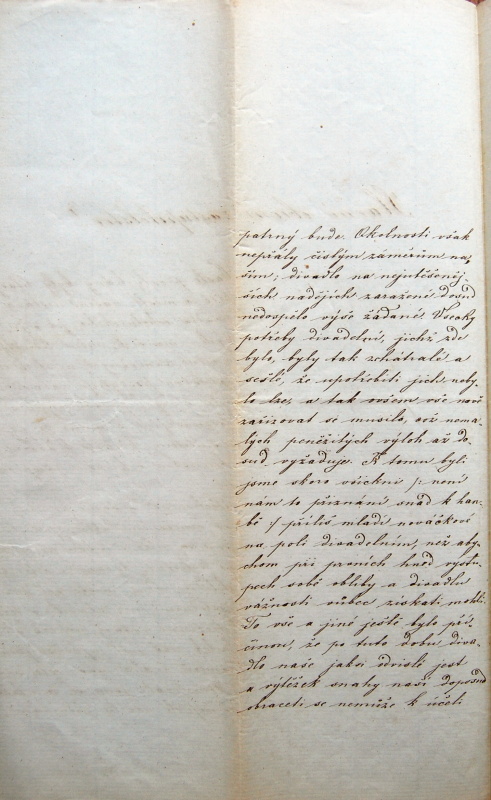 patrný bude. Okolnosti však
nepřály čistým záměrům na-
ším; divadlo na nejutěšeněj-
ších nadějích zaražené dosud
nedospělo výše žádané. Všecky
potřeby divadelní, jichž zde
bylo, byly tak zchátralé a
sešlé, že upotřebiti jich neby-
lo lze, a tak ovšem vše nově
zařizovat se musilo, což nema-
lých peněžitých výloh až do-
sud vyžaduje. K tomu byli
jsme skoro všickni /: není
nám to přiznání snad k han-
bě :/ příliš mladí nováčkové
na poli divadelním, než aby-
chom při prvních hned vystu-
pech sobě obliby a divadlu
vážnosti vůbec získati mohli.
To vše a jiné ještě bylo pří-
činou, že po tuto dobu diva-
dlo naše jaksi odvislé jest
a výtěžek snahy naší doposud
obraceti se nemůže k účeli